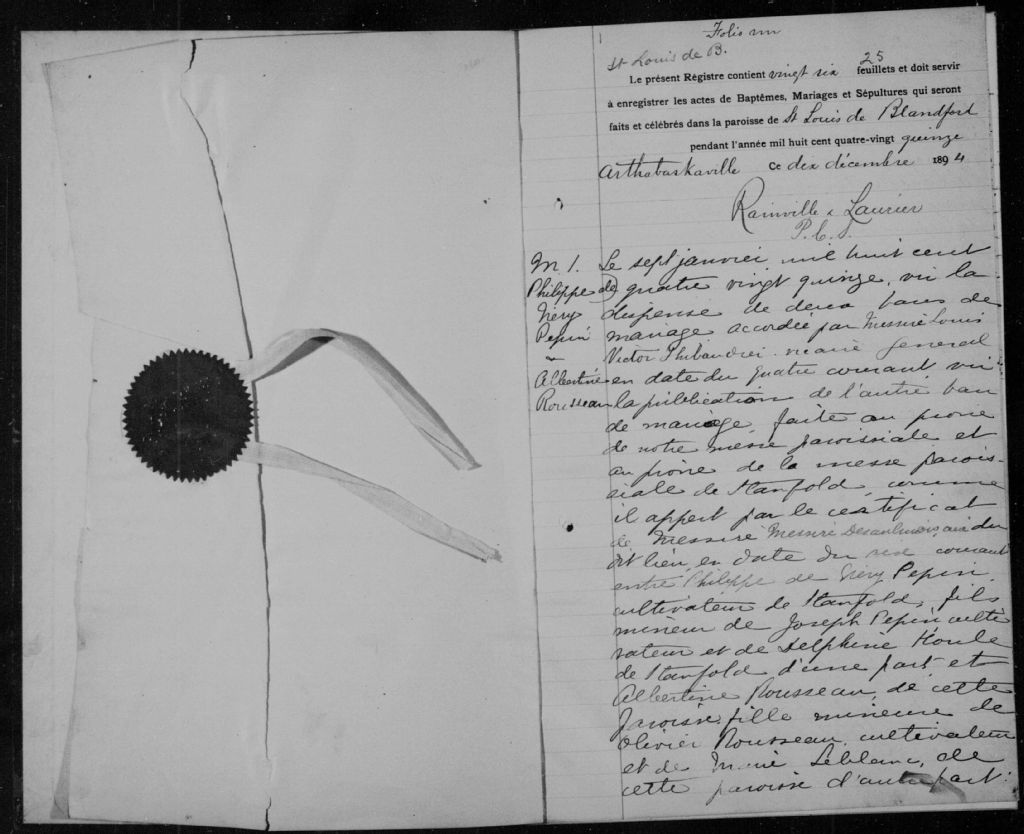 Folio un
St Louis de B.
25
Le présent Régistre contient vingt six feuillets et doit servir
à enregistrer les actes de Baptêmes, Mariages et Sépultures qui seront
faits et célébrés dans la paroisse de St Louis de Blandford
pendant l'année mil huit cent quatre-vingt quinze
Arthabaskaville Ce dix décembre 1894
Rainville & Laurier
P.C.S.
M 1.
Philippe de
Néry
Pepin
Albertine
Rousseau
Le sept janvier mil huit cent
quatre vingt quinze, vu la
dispense de deux bans de
mariage accordée par Messire Louis
Victor Thibaudier vicaire general
en date du quatre courant, vu
la publication de l'autre ban
de mariage, faite au prone
de notre messe paroissiale et
au prône de la messe parois-
siale de Stanfold, comme
il appert par le certificat
de Messire Messire Desaulniers, curé du
dit lieu, en date du six courant
entre Philippe de Néry Pepin,
cultivateur de Stanfold, fils
mineur de Joseph Pepin culti
vateur et de Delphine Houle
de Stanfold d'une part et
Albertine Rousseau, de cette
paroisse, fille mineure de
Olivier Rousseau, cultivateur
et de Marie Leblanc, de
cette paroisse d'autre part: